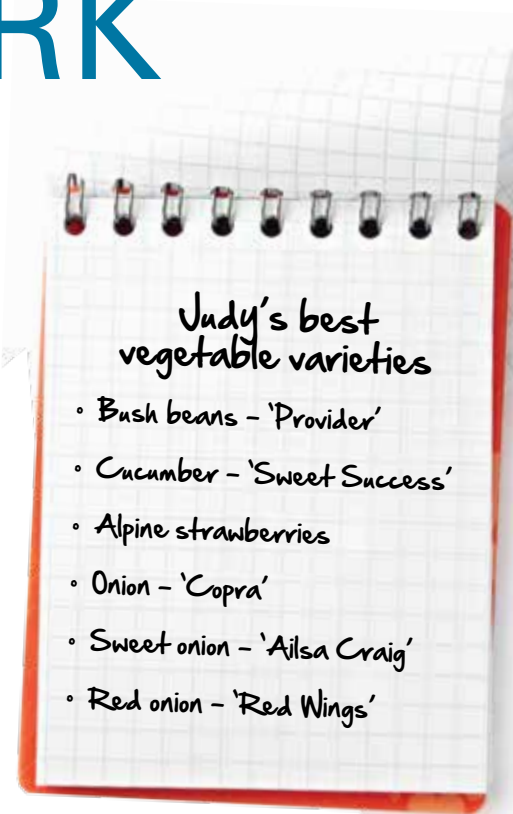 RK
Judy's best
vegetable varieties
• Bush beans – 'Provider'
• Cucumber – 'Sweet Success'
• Alpine strawberries
• Onion – 'Copra'
• Sweet onion – 'Ailsa Craig'
• Red onion – 'Red Wings'